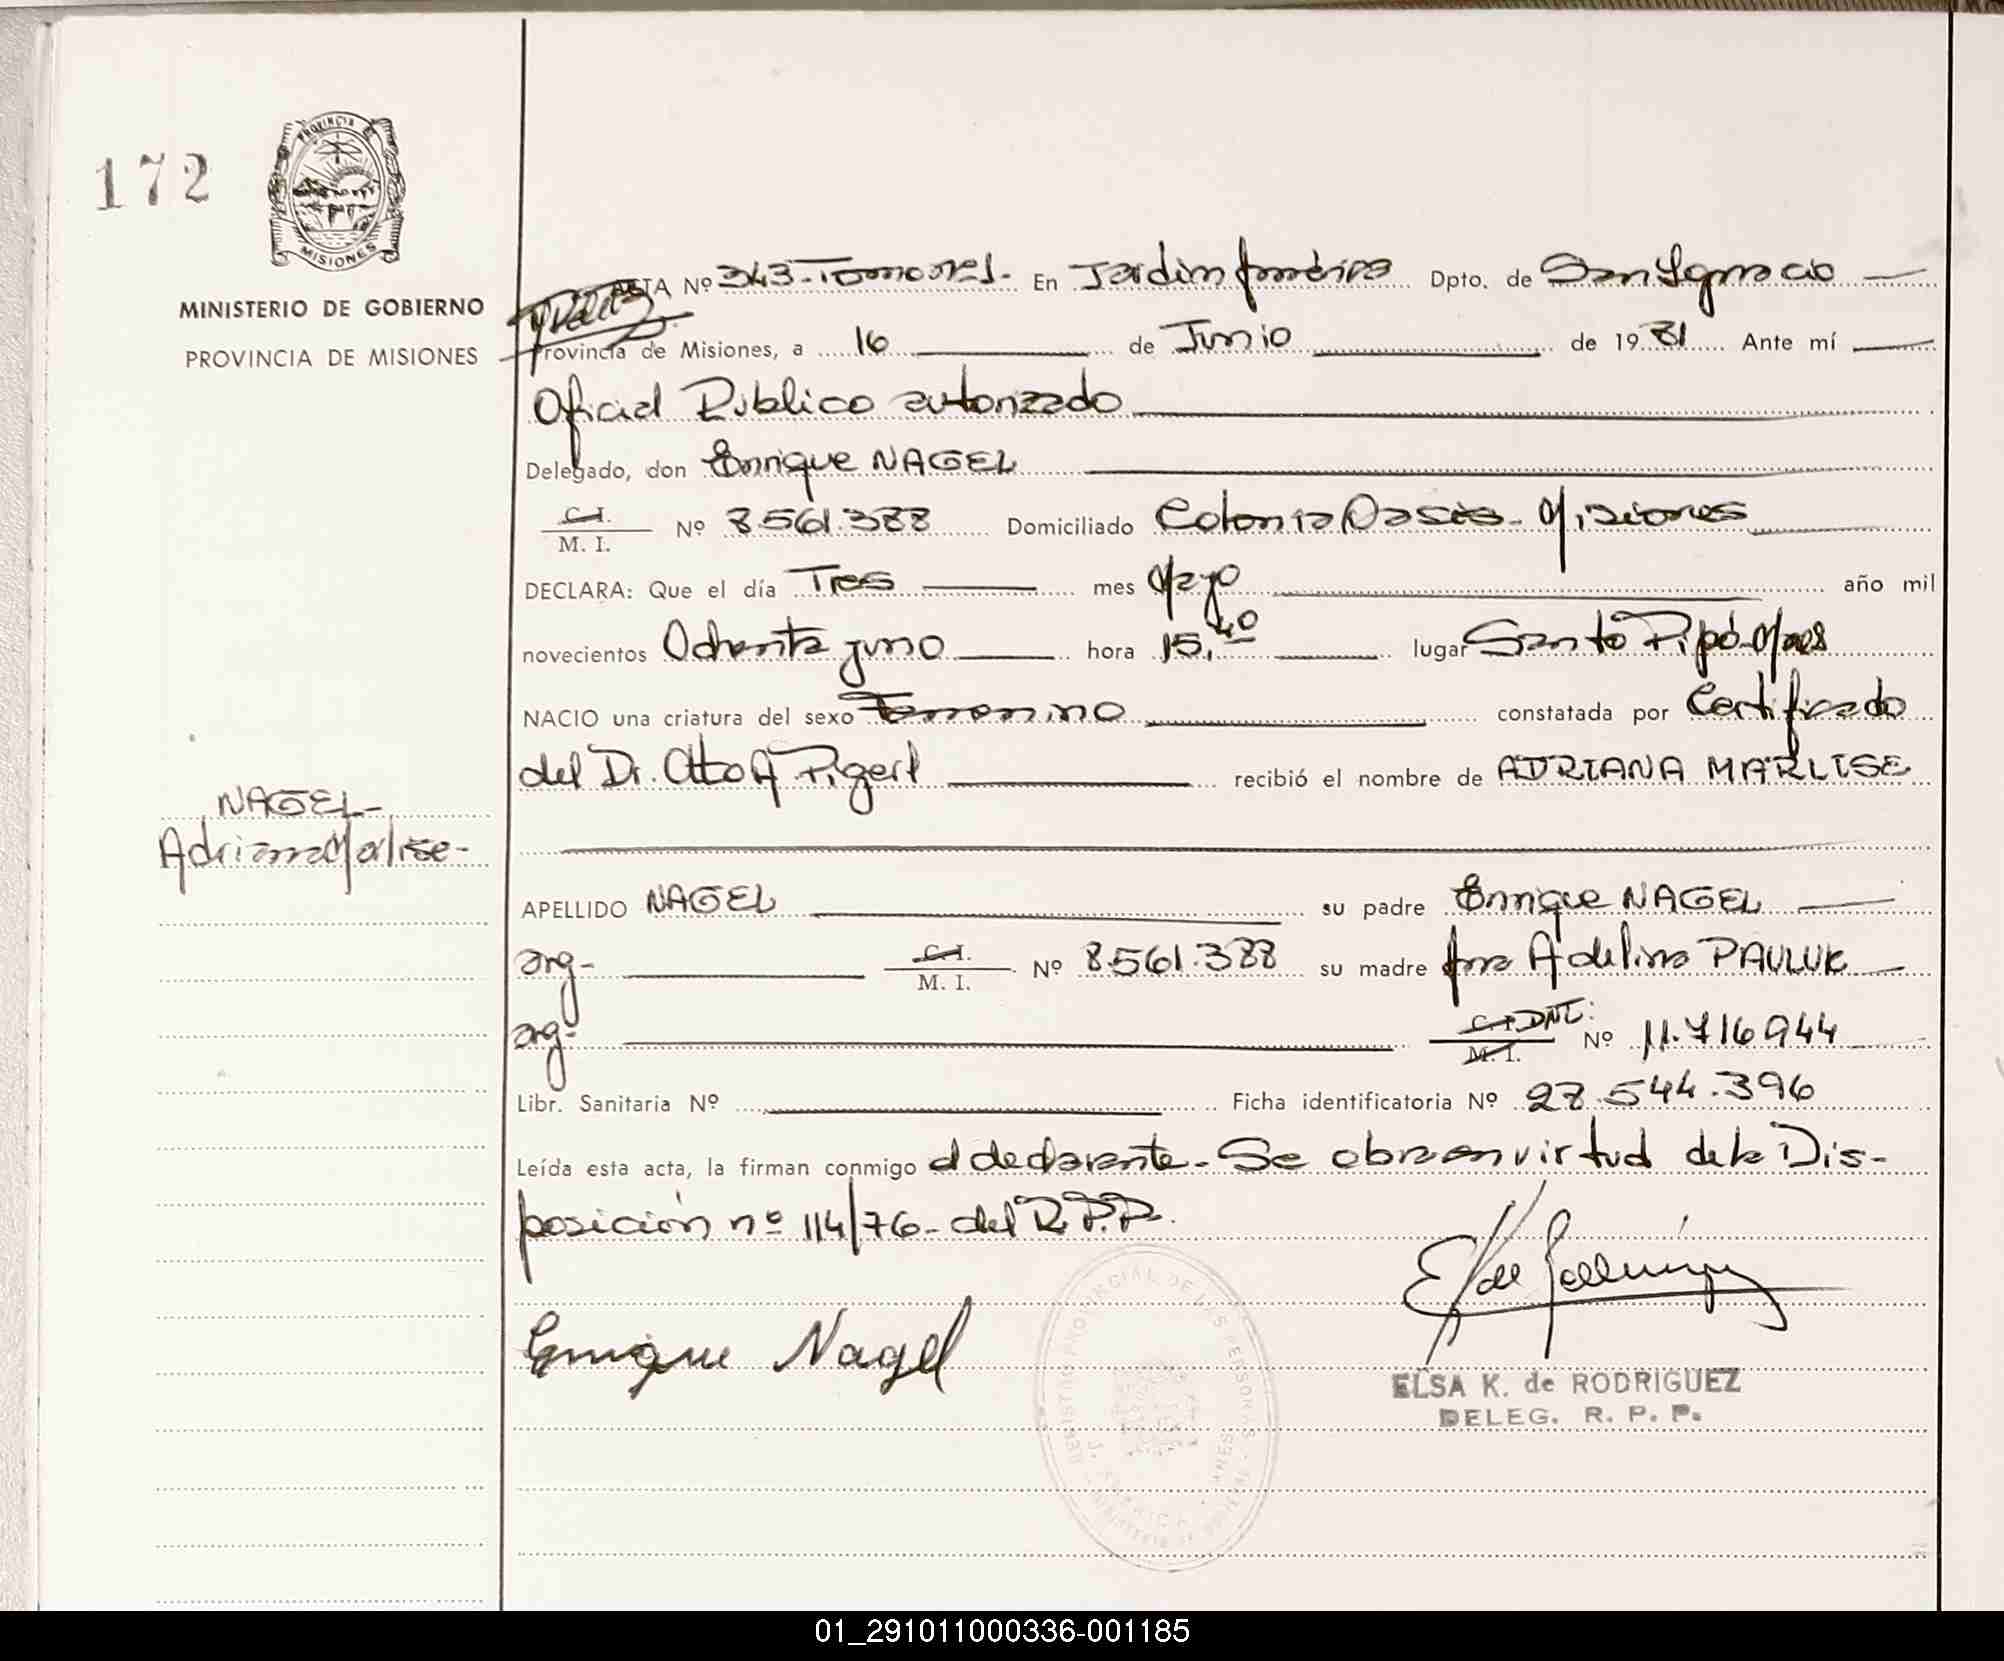 172
PROVINCIA DE
MISIONES
MINISTERIO DE GOBIERNO
PROVINCIA DE MISIONES
ACTA Nº 343-Tomo nº1.- En Jardin América Dpto. de San Ignacio
Provincia de Misiones, a 16 de Junio de 1981 Ante mí
Oficial Publico autorizado
Delegado, don Enrique NAGEL
C.I.
M. I. Nº 8.561.388 Domiciliado Colonia Oasis. Misiones
DECLARA: Que el día Tres mes Mayo año mil
novecientos Ochenta y uno hora 15,40 lugar Santo Pipó-Mnes
NACIO una criatura del sexo Femenino constatada por Certificado
del Dr. Otto A Pigerl recibió el nombre de ADRIANA MARLISE
NAGEL-
Adriana Marlise-
APELLIDO NAGEL su padre Enrique NAGEL
arg- C.I.
M. I. Nº 8.561.388 su madre Ana Adelina PAULUK
arg- C.I. DNI:
M. I. Nº 11.716944
Libr. Sanitaria Nº Ficha identificatoria Nº 28.544.396
Leída esta acta, la firman conmigo el declarante.- Se obra en virtud de la Dis-
posición nº 114/76- del R.P.P.
Enrique Nagel
REGISTRO PROVINCIAL DE LAS PERSONAS
ELSA K. de RODRIGUEZ
DELEG. R. P. P.
01_291011000336-001185